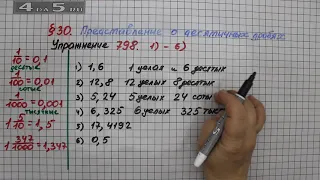 4 до 5.ru
§30. Представление о десятичных дробях
Упражнение 798. 1) - 6)
1/10 = 0,1
десятые
1/100 = 0,01
сотые
1/1000 = 0,001
тысячные
1 5/10 = 1,5
1 347/1000 = 1,347
1) 1,6 1 целая и 6 десятых
2) 12,8 12 целых 8 десятых
3) 5,24 5 целых 24 соты
4) 6,325 6 целых 325 тыс
5) 17,4192
6) 0,5